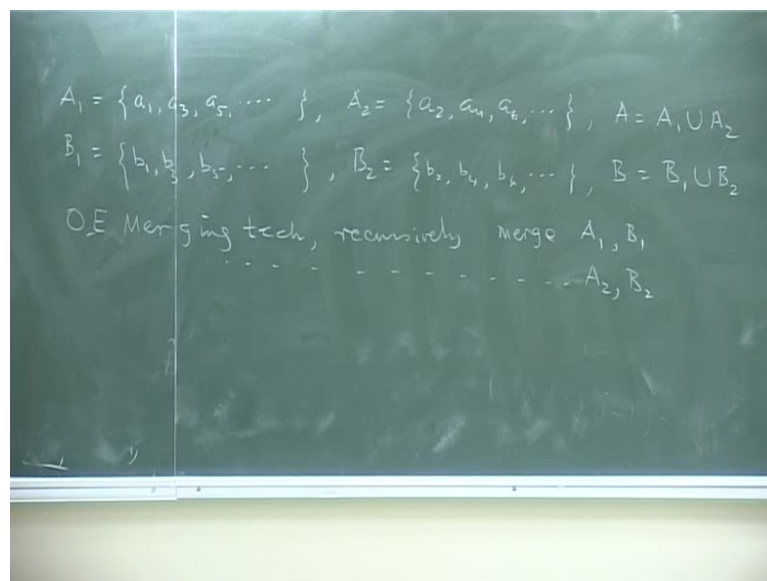 A₁ = {a₁, a₃, a₅, .... }, A₂ = {a₂, a₄, a₆, ...}, A = A₁ ∪ A₂
B₁ = {b₁, b₃, b₅, ... }, B₂ = {b₂, b₄, b₆, ... }, B = B₁ ∪ B₂
O.E Merging tech, recursively merge A₁, B₁
. - - - - - - - - - - - . . A₂, B₂